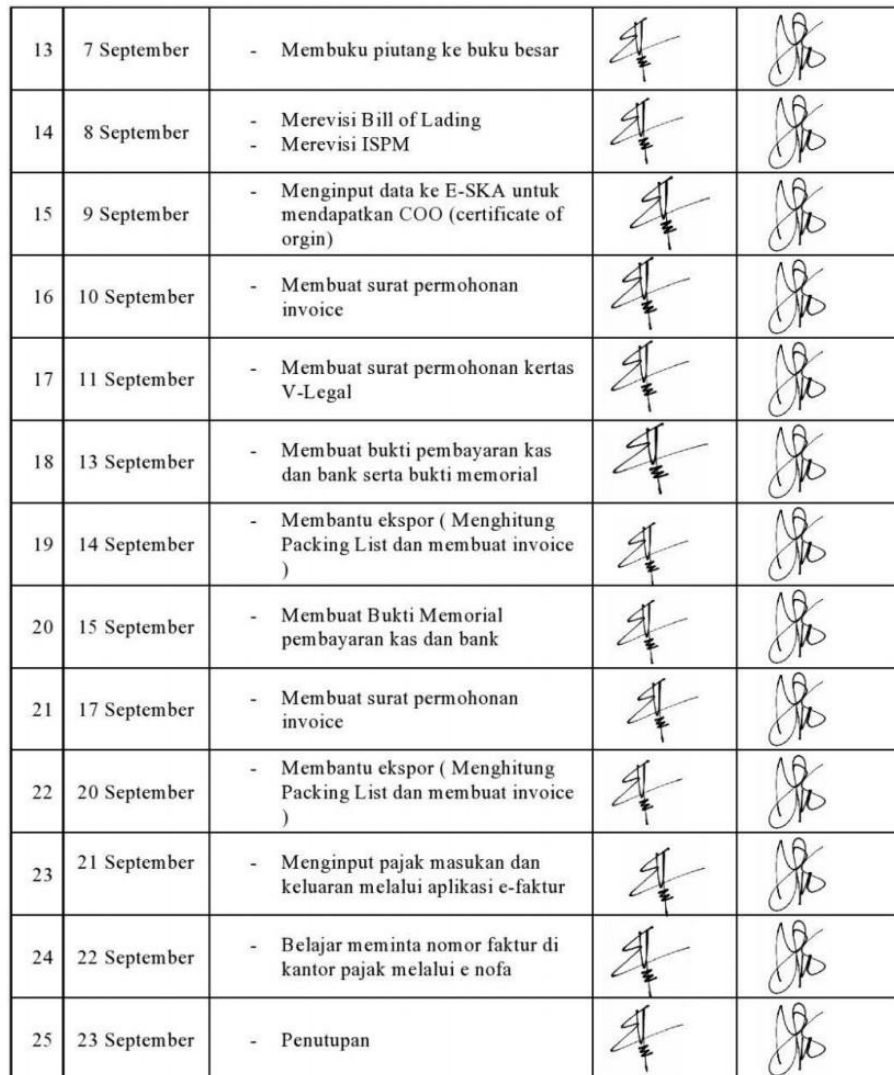 13 7 September - Membuku piutang ke buku besar
14 8 September - Merevisi Bill of Lading
- Merevisi ISPM
15 9 September - Menginput data ke E-SKA untuk
mendapatkan COO (certificate of
orgin)
16 10 September - Membuat surat permohonan
invoice
17 11 September - Membuat surat permohonan kertas
V-Legal
18 13 September - Membuat bukti pembayaran kas
dan bank serta bukti memorial
19 14 September - Membantu ekspor ( Menghitung
Packing List dan membuat invoice
)
20 15 September - Membuat Bukti Memorial
pembayaran kas dan bank
21 17 September - Membuat surat permohonan
invoice
22 20 September - Membantu ekspor ( Menghitung
Packing List dan membuat invoice
)
23 21 September - Menginput pajak masukan dan
keluaran melalui aplikasi e-faktur
24 22 September - Belajar meminta nomor faktur di
kantor pajak melalui e nofa
25 23 September - Penutupan